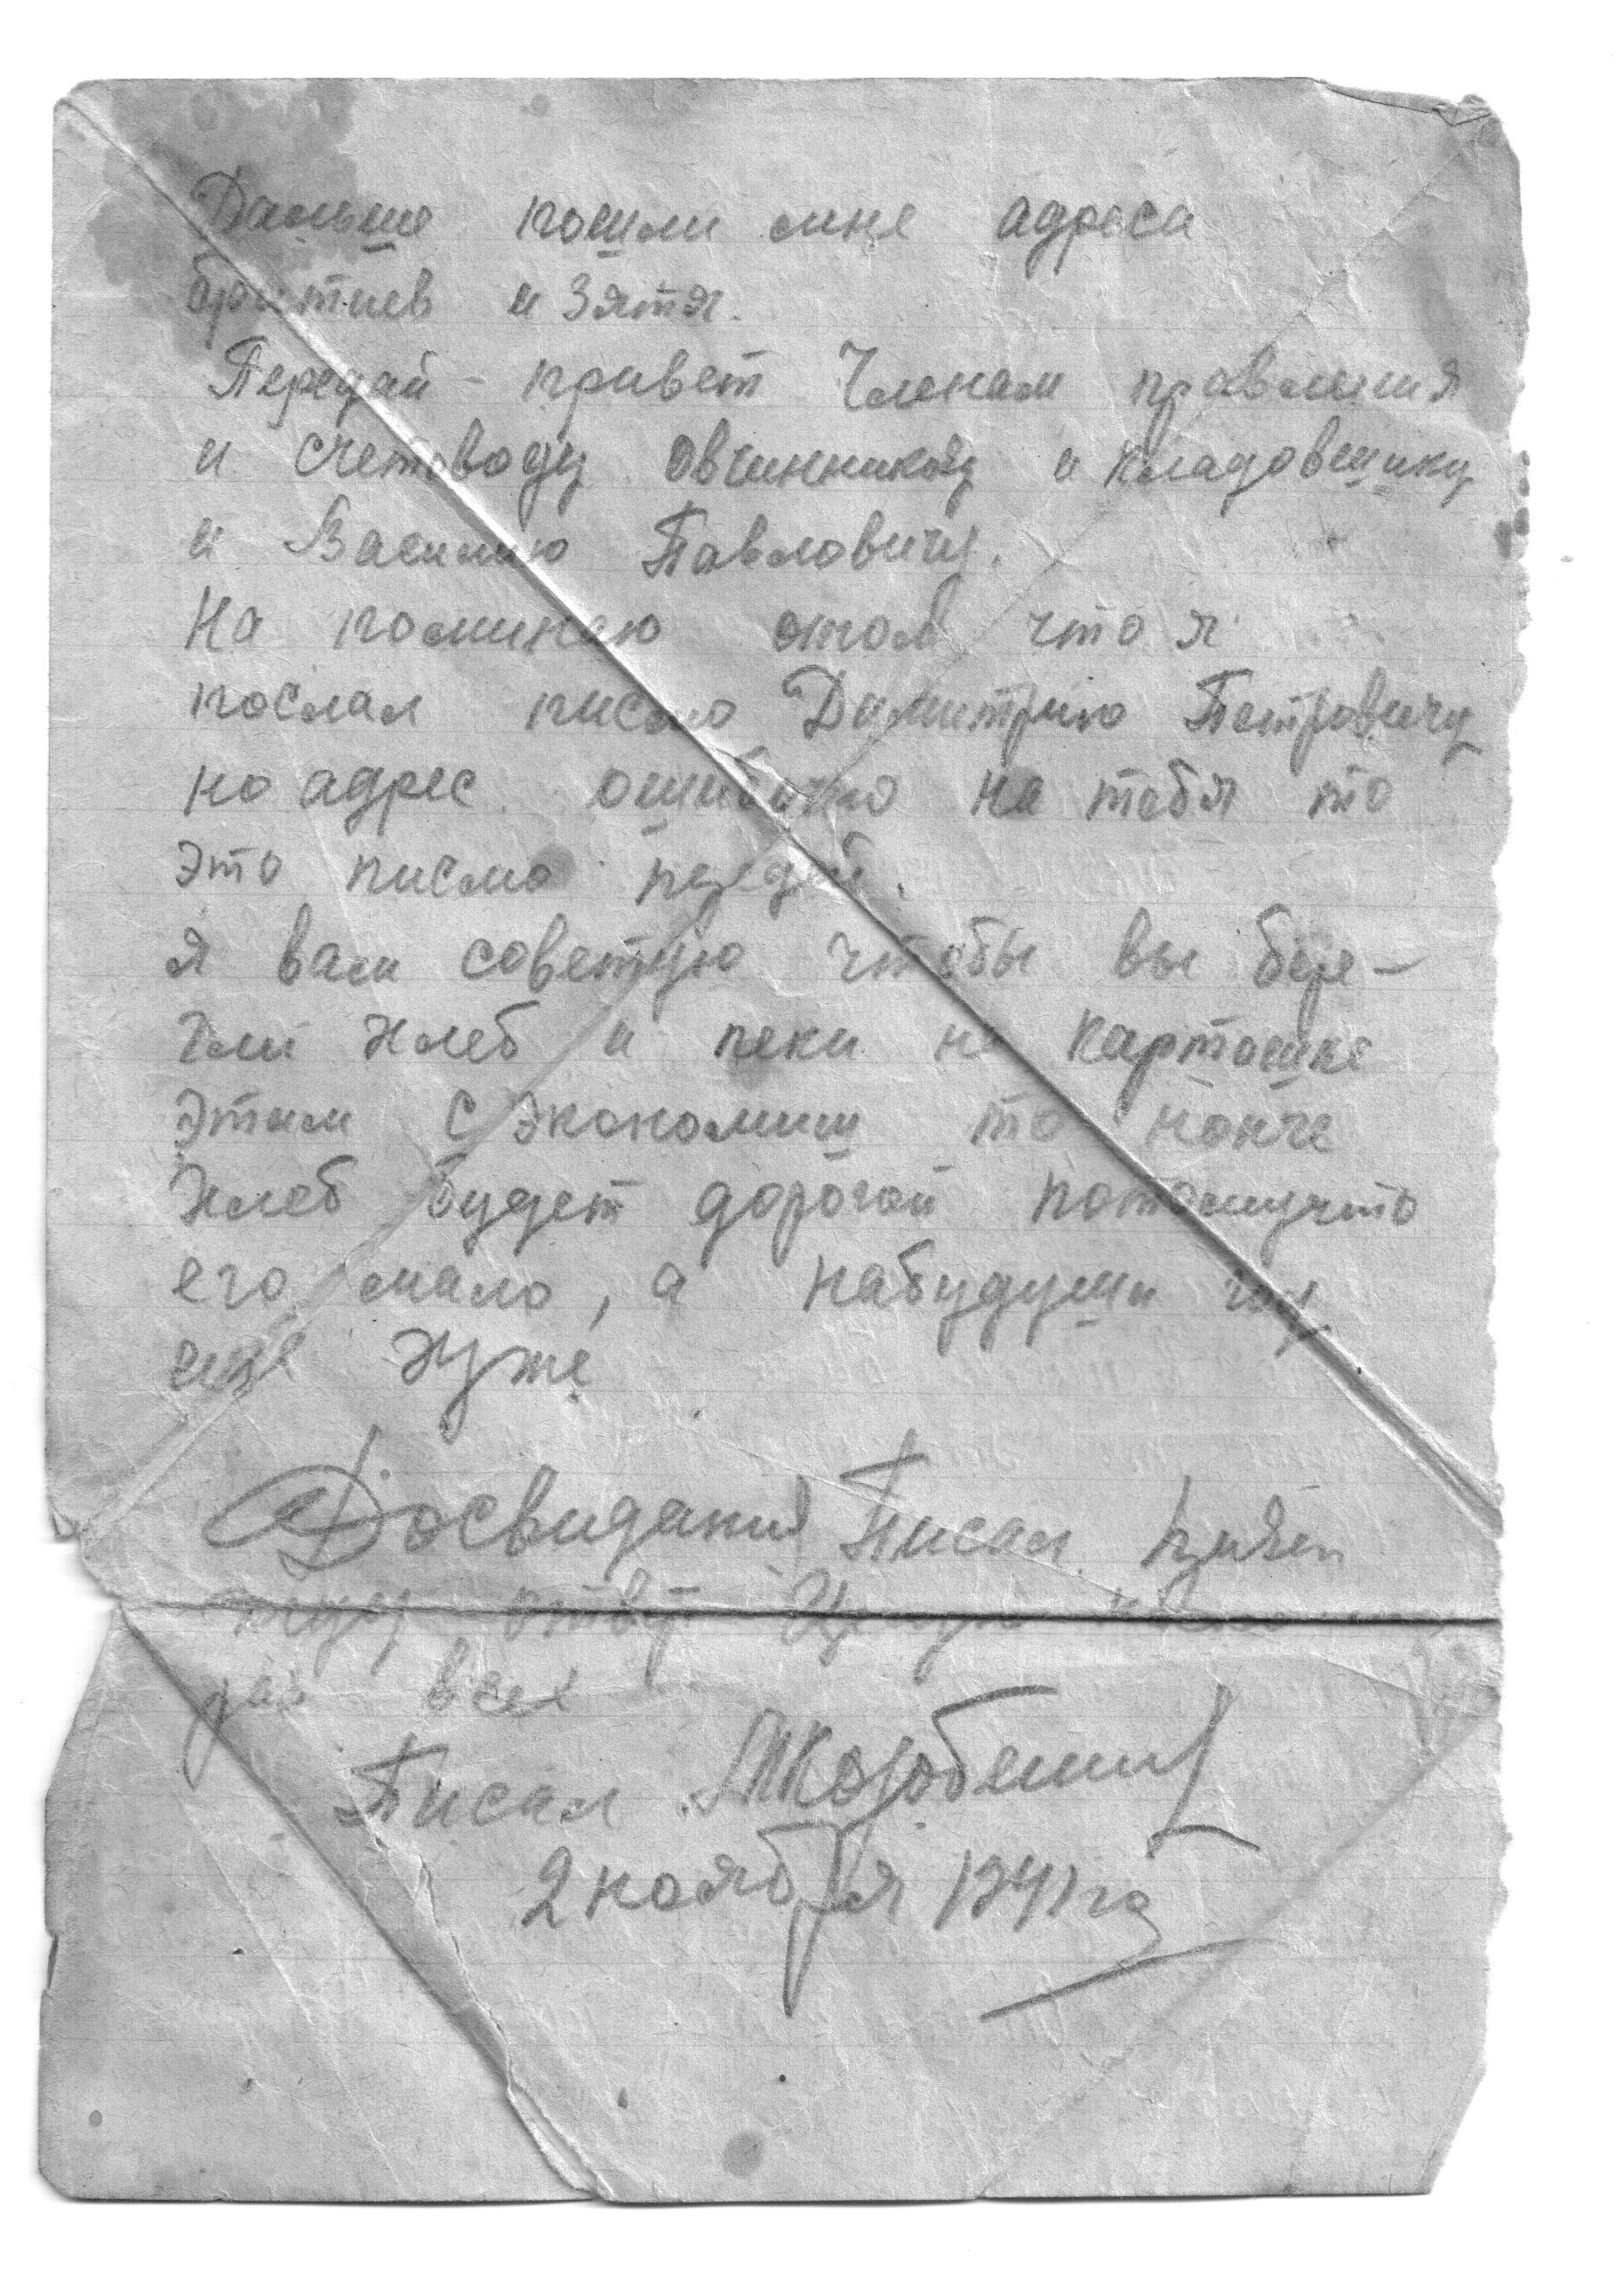 Дальше пошли мне адреса
братиев и Зятя.
Передай - привет Членам правления
и счетоводу Овчинникову и Кладовщику
и Василию Павловичу.
На поминаю отом что я
послал писмо Димитрию Петровичу
но адрес ошибочно на тебя то
это писмо передай.
Я вам советую чтобы вы бере-
гли хлеб и пеки на картошке
этим с экономиш то нонче
хлеб будет дорогой потомучто
его мало, а набудущи год
еще хуже
Досвидания Писал
жду ответ Целую
раз всех
Писал
2 ноября 1941 го